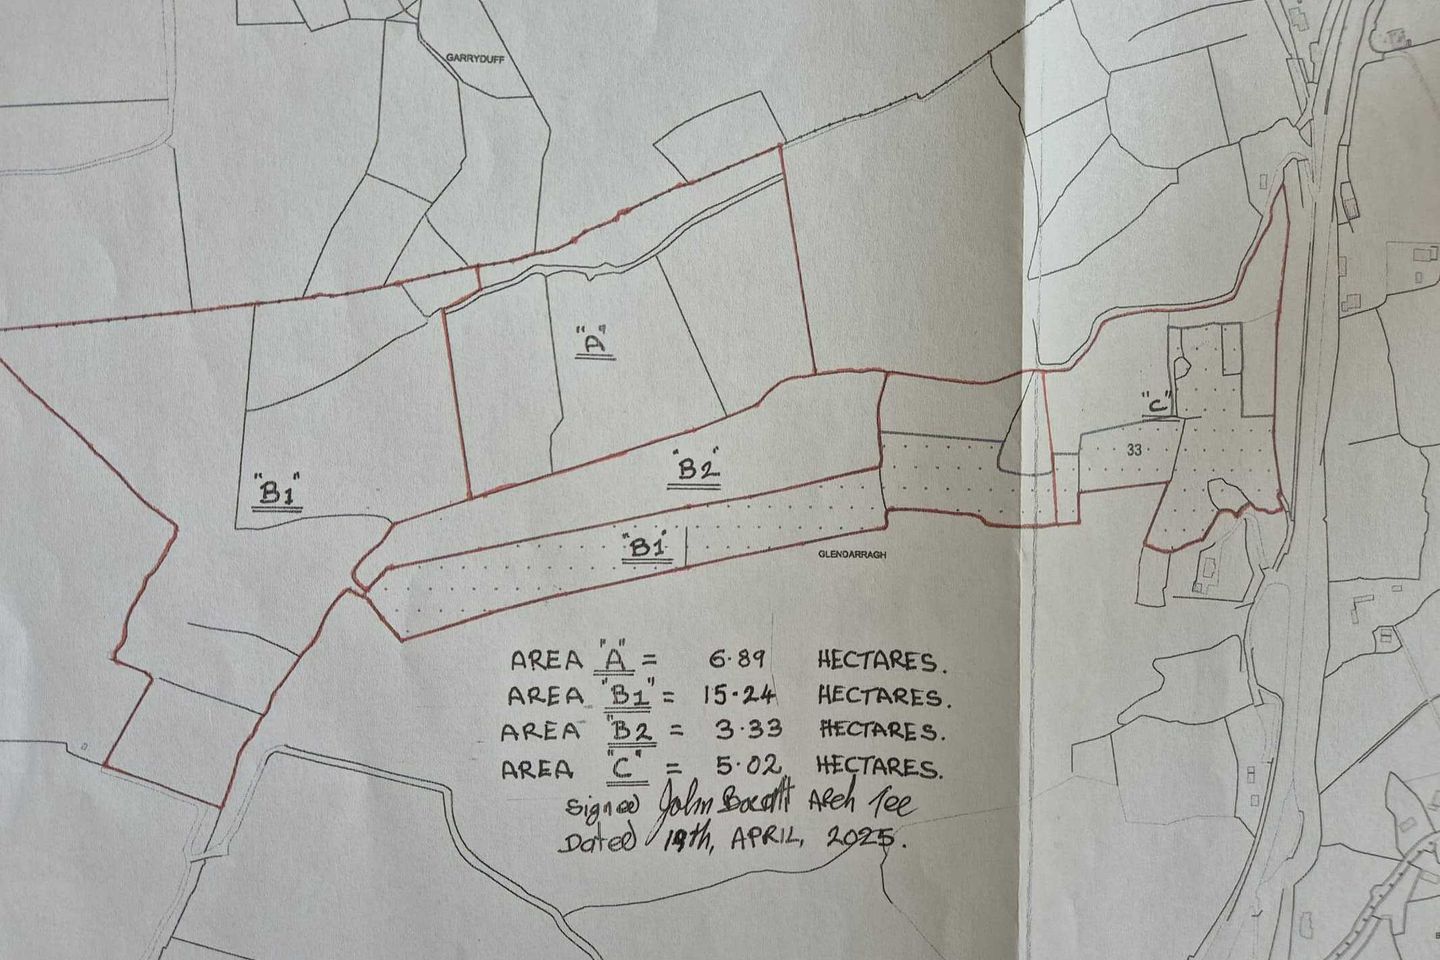 GARRYDUFF
"A"
"C"
33
"B2"
"B1"
"B1"
GLENDARRAGH
AREA "A" = 6.89 HECTARES.
AREA "B1" = 15.24 HECTARES.
AREA "B2" = 3.33 HECTARES.
AREA "C" = 5.02 HECTARES.
Signed John Arch Tec
Dated 19th, APRIL, 2025.